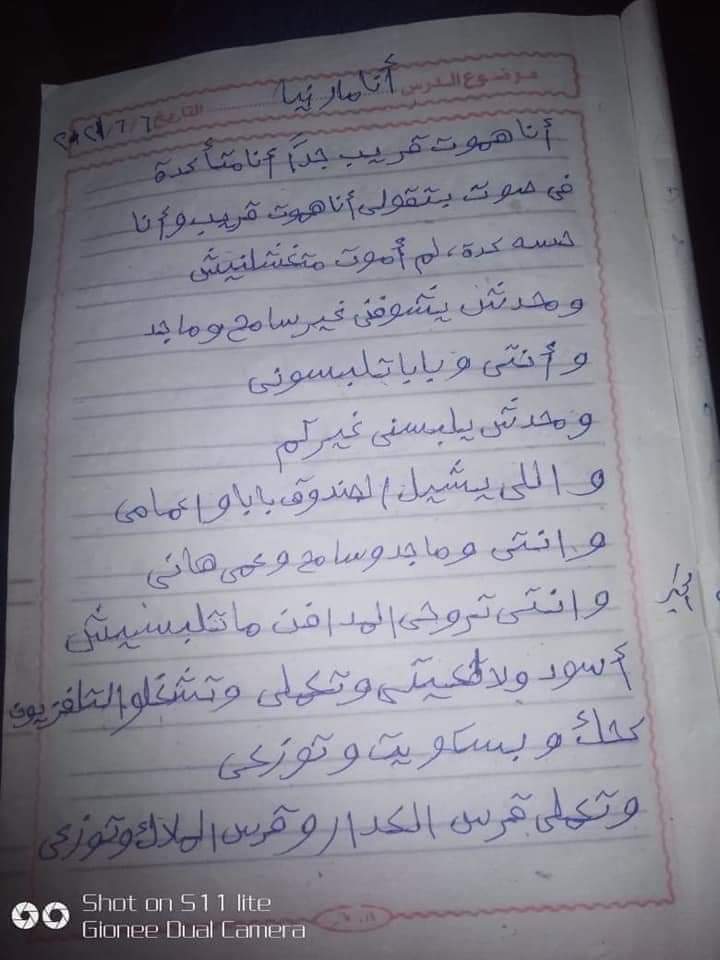 موضوع الدرس أنا مارينا التاريخ ٢٠٢١/٦/٦
أنا هموت قريب جداً أنا متأكدة
فى صوت بتقولى أنا هموت قريب وأنا
حسه كدة، لم أموت متغسلنيش
ومحدش يشوفنى غير سامح وماجد
وأنتى وبابا تلبسونى
ومحدش يلبسنى غيركم
واللى يشيل الصندوق بابا واعمامى
وانتى وماجد وسامح وعمى هانى
وانتى تروحى المدافن ماتلبسيش
أسود ولا تعيتى وتعملى وتشغلو التلفزيون
كحك وبسكويت وتوزعى
وتعملى قرس الحدار وقرس الملاك وتوزعى
Shot on S11 lite
Gionee Dual Camera